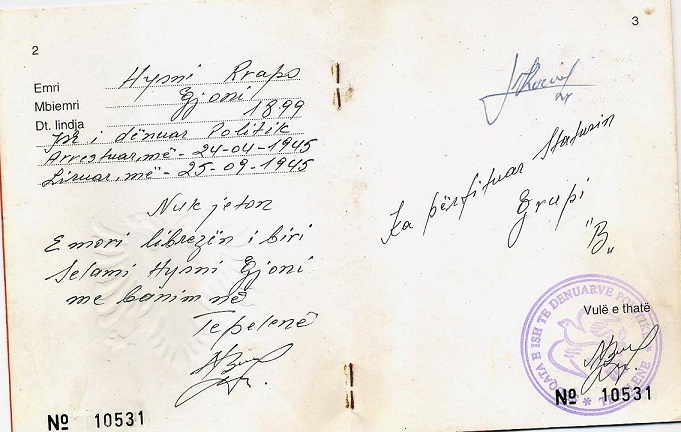 2
Emri Hysni Rrapo
Mbiemri Gjoni
Dt. lindja 1899
Ish i dënuar Politik
Arrestuar, më - 24-04-1945
Liruar, më - 25-09-1945
Nuk jeton
E mori librezën i biri
Selami Hysni Gjoni
me banim në
Tepelenë
No 10531
3
Ka përfituar Statusin
Grupi
"B"
Vulë e thatë
E ISH TE DENUARVE
No 10531